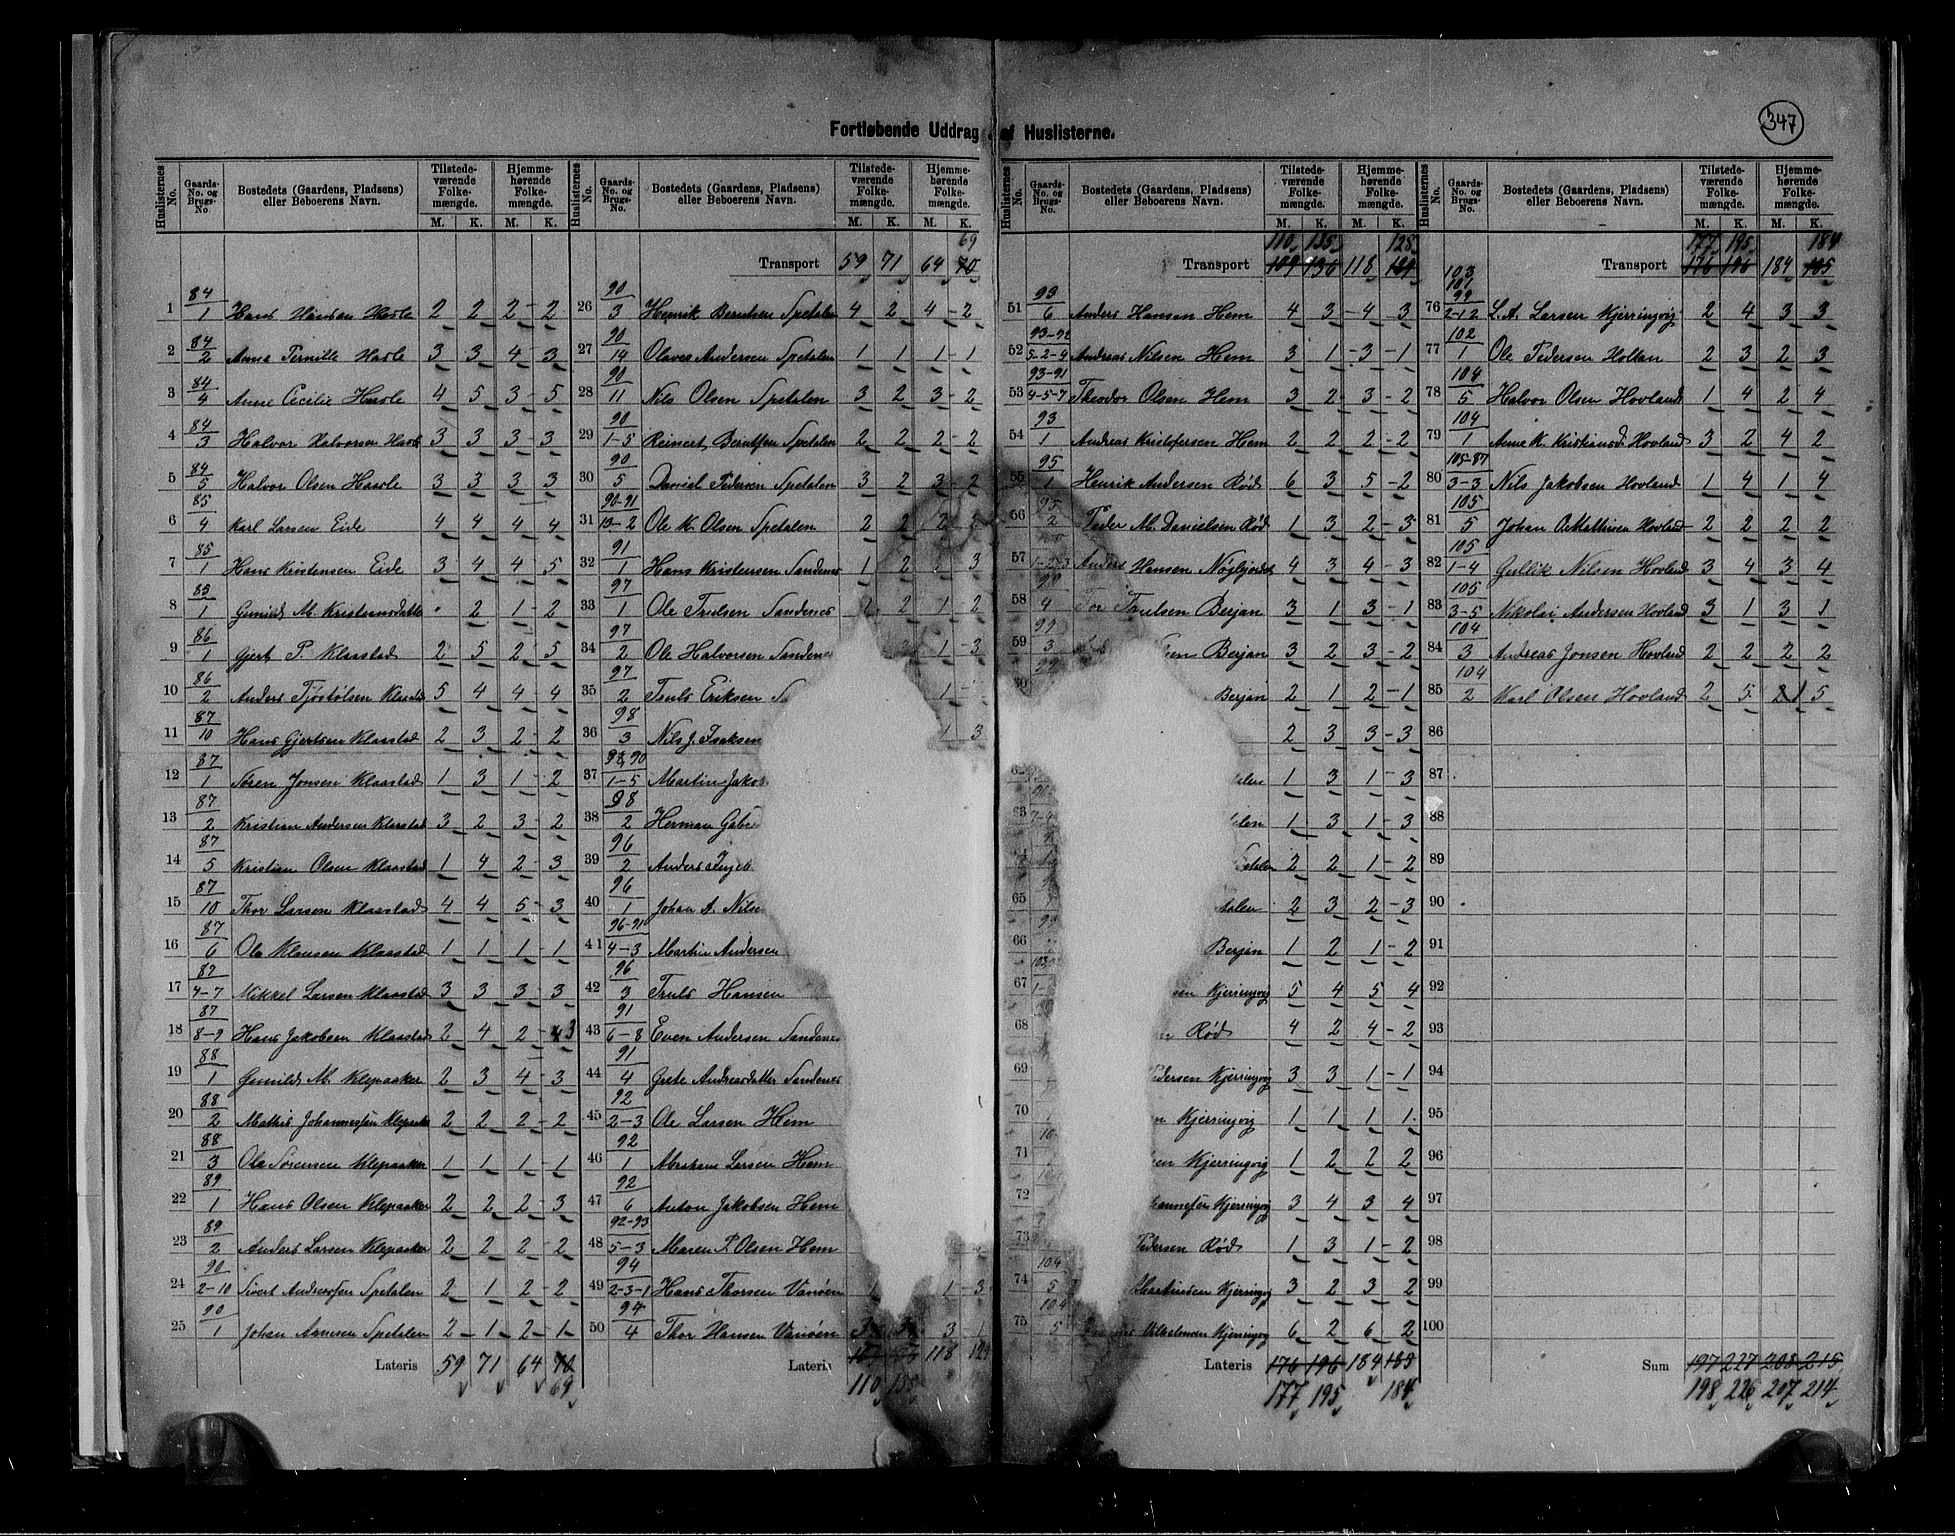 347
Fortløbende Uddrag af Huslisterne.
Huslisternes No. Gaards- No. og Brugs- No. Bostedets (Gaardens, Pladsens) eller Beboerens Navn. Tilstede- værende Folke- mængde. Hjemme- hørende Folke- mængde.
M. K. M. K.
1 84/1 Hans Hansen Hasle 2 2 2 - 2
2 84/2 Anna Pernille Hasle 3 3 4 - 3
3 84/4 Anne Cecilie Hasle 4 5 3 - 5
4 84/3 Halvor Halvorsen Hasle 3 3 3 - 3
5 84/5 Halvor Olsen Haasle 3 3 3 3
6 85/4 Karl Larsen Eide 4 4 4 4
7 85/1 Hans Kristensen Eide 3 4 4 5
8 85/1 Gunild M. Kristiansdatter 2 1 - 2
9 86/1 Gjert P. Klaastad 2 5 2 - 5
10 86/2 Anders Tjøstølsen Klaastad 5 4 4 - 4
11 87/10 Hans Gjertsen Klaastad 2 3 2 - 2
12 87/1 Søren Jonsen Klaastad 1 3 1 - 2
13 87/2 Kristian Andersen Klaastad 3 2 3 - 2
14 87/5 Kristian Olsen Klaastad 1 4 2 - 3
15 87/10 Thor Larsen Klaastad 4 4 5 - 3
16 87/6 Ole Klausen Klaastad 1 1 1 - 1
17 87/4-7 Mikkel Larsen Klaastad 3 3 3 - 3
18 87/8-9 Hans Jakobsen Klaastad 2 4 2 - 3
19 88/1 Gunild M. Klepaaker 2 3 4 - 3
20 88/2 Mathis Johannessen Klepaaker 2 2 2 - 2
21 88/3 Ole Sørensen Klepaaker 1 1 1 - 1
22 89/1 Hans Olsen Klepaaker 2 2 2 - 3
23 89/2 Anders Larsen Klepaaker 2 2 2 - 2
24 90/2-10 Sivert Andreassen Spetalen 2 1 2 - 2
25 90/1 Johan Arnesen Spetalen 2 - 1 - 2 - 1
Lateris 59 71 64 70
69
Huslisternes No. Gaards- No. og Brugs- No. Bostedets (Gaardens, Pladsens) eller Beboerens Navn. Tilstede- værende Folke- mængde. Hjemme- hørende Folke- mængde.
M. K. M. K.
69
Transport 59 71 64 70
26 90/3 Henrik Berntsen Spetalen 4 2 4 - 2
27 90/14 Olaves Andersen Spetalen 1 1 1 - 1
28 90/11 Nils Olsen Spetalen 3 2 3 - 2
29 90/1-5 Reinert Berntsen Spetalen 2 2 2 - 2
30 90/5 Daniel Pedersen Spetalen 3 2 3 - 2
31 90-91/13-2 Ole K. Olsen Spetalen 2 2 2
32 91/1 Hans Kristensen Sandenes 1 2 3
33 97/1 Ole Trulsen Sandenes 2 2 1 2
34 97/2 Ole Halvorsen Sandenes 1 - 3
35 97/2 Truls Eriksen 1
36 98/3 Nils J. Isaksen 1 3
37 98, 90/1-5 Martin Jakob
38 98/2 Herman Gabri
39 96/2 Anders Ingeb
40 96/1 Johan A. Nils
41 96-91/4-3 Martin Andersen
42 96/3 Truls Hansen
43 91/6-8 Even Andersen Sandenes
44 91/4 Grete Andreasdatter Sandenes
45 92/2-3 Ole Larsen Hem
46 92/1 Abraham Larsen Hem
47 92/6 Anton Jakobsen Hem
48 92-93/5-3 Maren P. Olsen Hem
49 94/2-3-1 Hans Thorsen Vanøen 1 - 3
50 94/4 Thor Hansen Vanøen 3 3 1
Lateris 118
110 135
Huslisternes No. Gaards- No. og Brugs- No. Bostedets (Gaardens, Pladsens) eller Beboerens Navn. Tilstede- værende Folke- mængde. Hjemme- hørende Folke- mængde.
M. K. M. K.
110 135 128
Transport 109 136 118 129
51 93/6 Anders Hanson Hem 4 3 - 4 3
52 93-92/5-2-4 Andreas Nilsen Hem 3 1 - 3 - 1
53 93-91/4-5-7 Theodor Olsen Hem 3 2 3 - 2
54 93/1 Andreas Kristofersen Hem 2 2 2 - 2
55 95/1 Henrik Andersen Rød 6 3 5 - 2
56 95/2 Peder M. Danielsen Rød 1 3 2 - 3
57 Anders Hansen Nøglgjordet 4 3 4 - 3
58 4 Tor Trulsen Berjan 3 1 3 - 1
59 3 sen Berjan 3 2 3 - 2
Berjan 2 1 2 - 1
2 3 3 - 3
talen 1 3 1 - 3
63 talen 1 3 1 - 3
petalen 2 2 1 - 2
65 talen 2 3 2 - 3
66 Berjan 1 2 1 - 2
67 sen Kjerringvig 5 4 5 4
68 n Rød 4 2 4 - 2
69 Pedersen Kjerringvig 3 3 1 - 1
70 n Kjerringvig 1 1 1 1
71 sen Kjerringvig 1 2 2 2
72 hannesen Kjerringvig 3 4 3 4
73 Pedersen Rød 1 3 1 - 2
74 104/5 Martinsen Kjerringvig 3 2 3 2
75 104/5 Vilhelmsen Kjerringvig 6 2 6 2
Lateris 176 196 184 185
177 195 184
Huslisternes No. Gaards- No. og Brugs- No. Bostedets (Gaardens, Pladsens) eller Beboerens Navn. Tilstede- værende Folke- mængde. Hjemme- hørende Folke- mængde.
M. K. M. K.
177 195 184
Transport 176 196 184 185
76 103 101 99/2-1 2 L. A. Larsen Kjerringvig 2 4 3 3
77 102/1 Ole Pedersen Holtan 2 3 2 3
78 104/5 Halvor Olsen Hovland 1 4 2 4
79 104/1 Anne K. Kristiansd. Hovland 3 2 4 2
80 105-87/3-3 Nils Jakobsen Hovland 1 4 1 4
81 105/5 Johan O. Mathisen Hovland 2 2 2 2
82 105/1-4 Gullik Nilsen Hovland 3 4 3 4
83 105/3-5 Nikolai Andersen Hovland 3 1 3 1
84 104/3 Andreas Jonsen Hovland 2 2 2 2
85 104/2 Karl Olsen Hovland 2 5 2 1 5
86
87
88
89
90
91
92
93
94
95
96
97
98
99
100
Sum 197 227 208 215
198 226 207 214